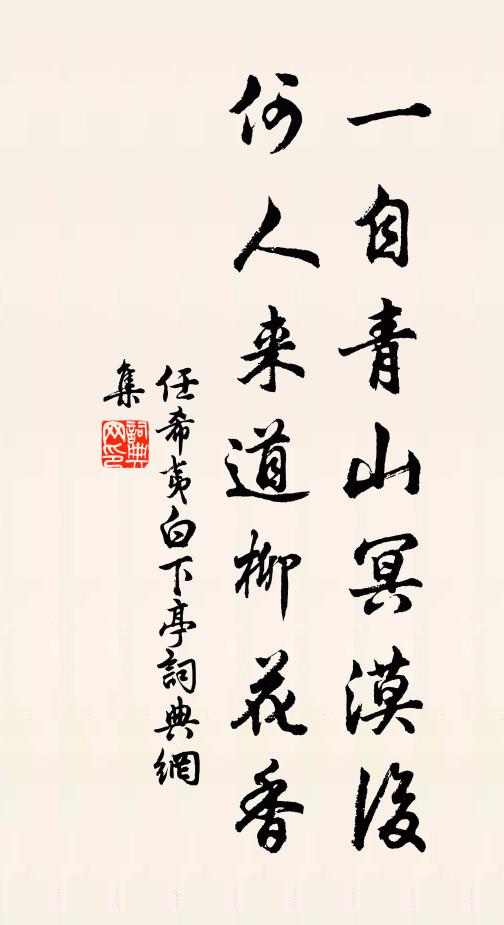 一自青山冥漠後
何人来道柳花香
任希夷白下亭詞典網
集
詞典
网印